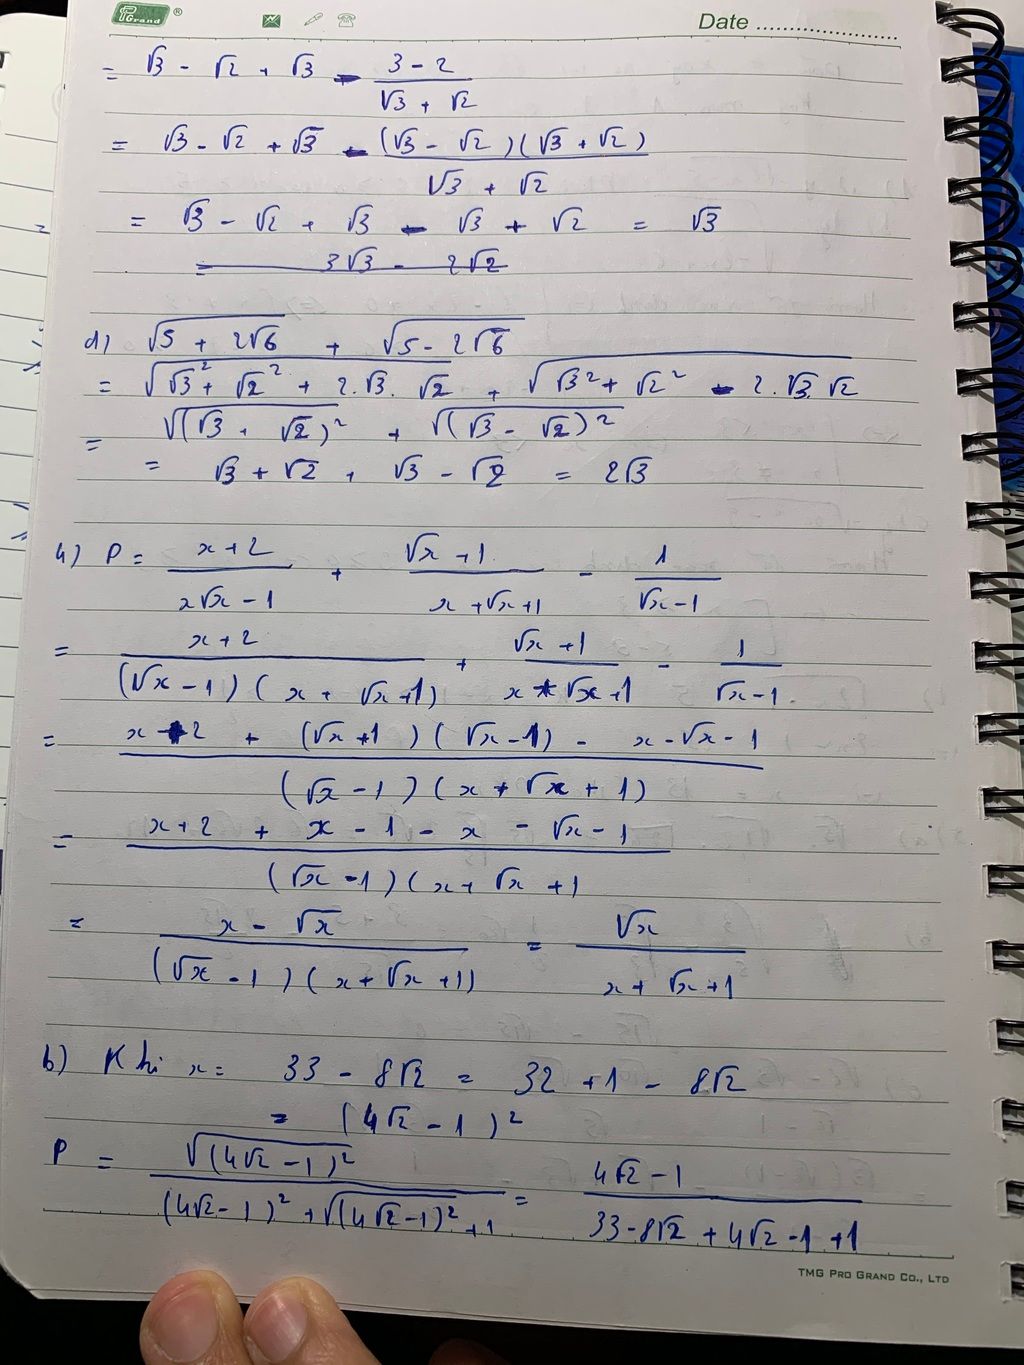 PGrand ® Date
= √3 - √2 + √3 - (3 - 2)/(√3 + √2)
= √3 - √2 + √3 - (√3 - √2)(√3 + √2)/(√3 + √2)
= √3 - √2 + √3 - √3 + √2 = √3
= 3√3 - 2√2
d) √(5 + 2√6) + √(5 - 2√6)
= √(√3² + √2² + 2.√3.√2) + √(√3² + √2² - 2.√3.√2)
= √((√3 + √2)²) + √((√3 - √2)²)
= √3 + √2 + √3 - √2 = 2√3
4) P = (x+2)/(x√x - 1) + (√x + 1)/(x + √x + 1) - 1/(√x - 1)
= (x+2)/((√x - 1)(x + √x + 1)) + (√x + 1)/(x + √x + 1) - 1/(√x - 1)
= (x+2 + (√x + 1)(√x - 1) - x - √x - 1)/((√x - 1)(x + √x + 1))
= (x+2 + x - 1 - x - √x - 1)/((√x - 1)(x + √x + 1
= (x - √x)/((√x - 1)(x + √x + 1)) = √x/(x + √x + 1)
b) Khi x = 33 - 8√2 = 32 + 1 - 8√2
= (4√2 - 1)²
P = √((4√2 - 1)²)/((4√2 - 1)² + √((4√2 - 1)²) + 1) = (4√2 - 1)/(33 - 8√2 + 4√2 - 1 + 1)
TMG PRO GRAND CO., LTD